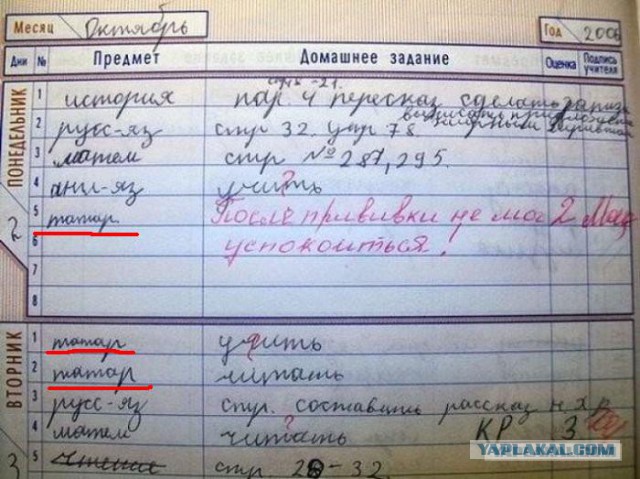 Месяц Октябрь Год 2006
Дни № Предмет Домашнее задание Оценка Подпись учителя
ПОНЕДЕЛЬНИК
2
стр -21.
1 история пар. 4 пересказ сделать
2 русс-яз стр 32. упр 78
3 матем стр №287,295.
4 англ-яз учить
?
5 татар После прививки не мог 2
6 успокоиться!
7
8
ВТОРНИК
3
1 татар учить
2 татар читать
3 русс-яз стр. составить рассказ
?
4 матем читать КР 3
5 чтение стр. 28-32.
YAPLAKAL.COM